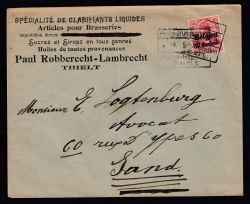 SPÉCIALITÉ DE CLARIFIANTS LIQUIDES
Articles pour Brasseries
Importation directe
Sucres et Sirops en tous genres
Huiles de toutes provenances
Paul Robberecht-Lambrecht
THIELT
Monsieur E. Logtenburg
Avocat
60 rue d'Ypres 60
Gand.